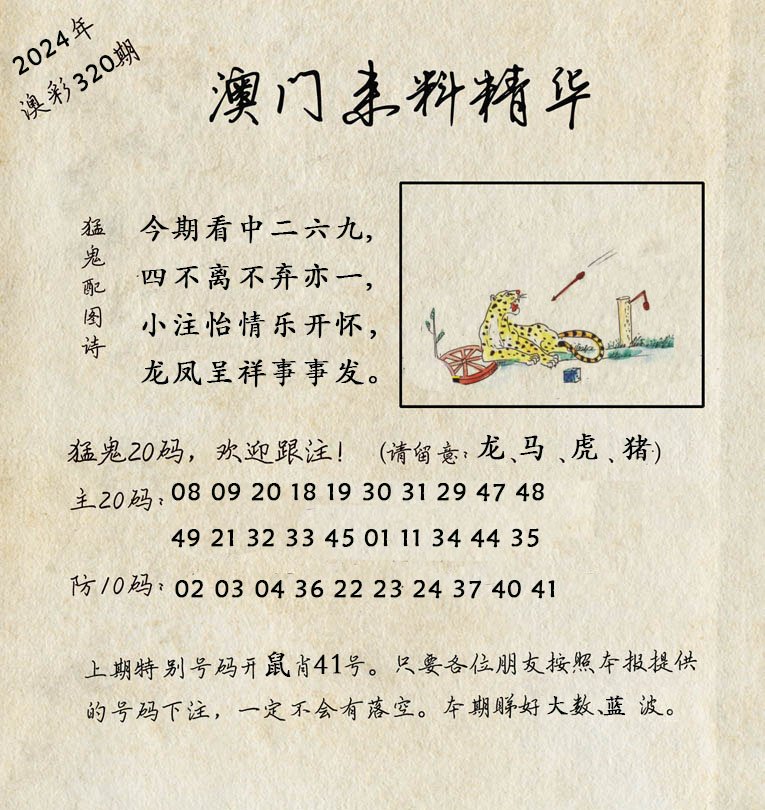 2024年
澳彩320期
澳门来料精华
猛鬼配图诗
今期看中二六九,
四不离不弃亦一,
小注怡情乐开怀,
龙凤呈祥事事发。
猛鬼20码,欢迎跟注! (请留意:龙、马、虎、猪)
主20码: 08 09 20 18 19 30 31 29 47 48
49 21 32 33 45 01 11 34 44 35
防10码: 02 03 04 36 22 23 24 37 40 41
上期特别号码开鼠肖41号。只要各位朋友按照本报提供
的号码下注,一定不会有落空。本期睇好大数、蓝 波。